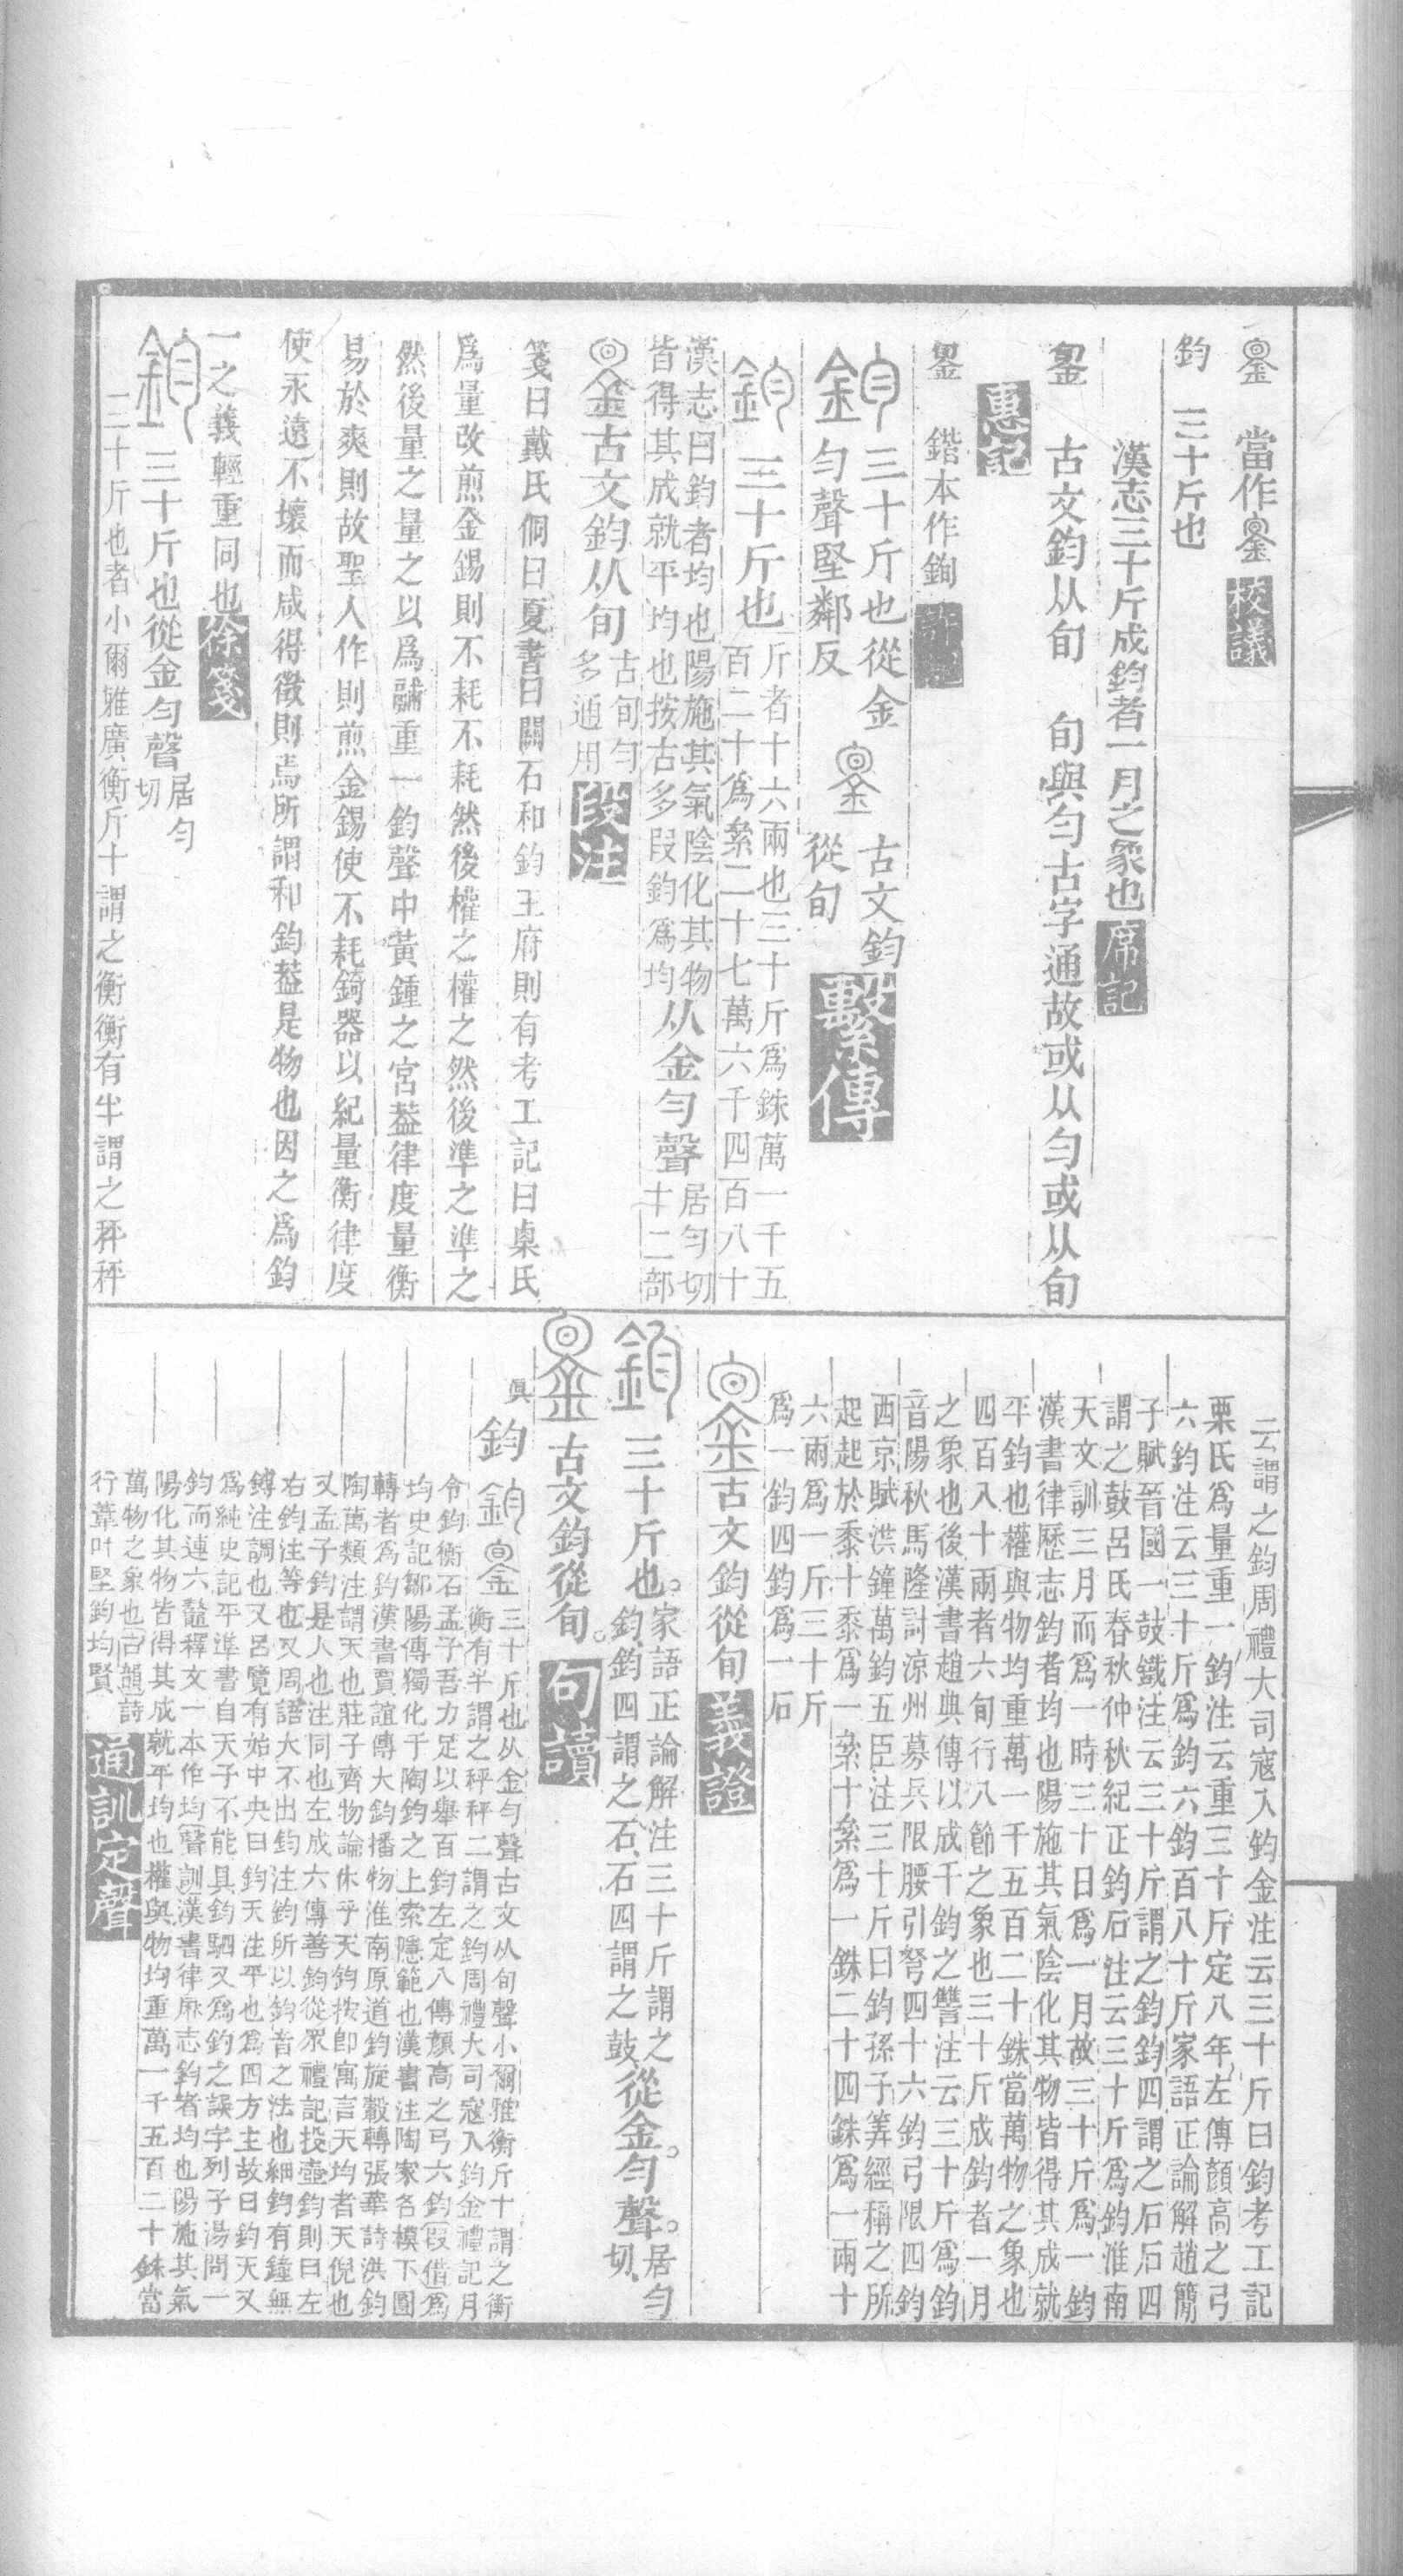 𨥐當作𨥐校議
鈞 三十斤也
漢志三十斤成鈞者一月之象也席記
𨥐 古文鈞从旬 旬與勻古字通故或从勻或从旬
惠記
𨥐 鍇本作銁許記
鈞三十斤也從金
勻聲堅鄰反
𨥐古文鈞
從旬繫傳
鈞三十斤也斤者十六兩也三十斤爲銖萬一千五
百二十爲絫二十七萬六千四百八十
漢志曰鈞者均也陽施其氣陰化其物
皆得其成就平均也按古多叚鈞爲均从金勻聲居勻切
十二部
𨥐古文鈞从旬古旬勻
多通用段注
箋曰戴氏侗曰夏書曰關石和鈞王府則有考工記曰㮚氏
爲量改煎金錫則不耗不耗然後權之權之然後準之準之
然後量之量之以爲鬴重一鈞聲中黃鍾之宮葢律度量衡
易於爽則故聖人作則煎金錫使不耗鑄器以紀量衡律度
使永遠不壞而咸得徵則焉所謂和鈞葢是物也因之爲鈞
一之義輕重同也徐箋
鈞三十斤也從金勻聲居勻
切
三十斤也者小爾雅廣衡斤十謂之衡衡有半謂之秤秤
二謂之鈞周禮大司寇入鈞金注云三十斤曰鈞考工記
栗氏爲量重一鈞注云重三十斤定八年左傳顏高之弓
六鈞注云三十斤爲鈞六鈞百八十斤家語正論解趙簡
子賦晉國一鼓鐵注云三十斤謂之鈞鈞四謂之石石四
謂之鼓呂氏春秋仲秋紀正鈞石注云三十斤爲鈞淮南
天文訓三月而爲一時三十日爲一月故三十斤爲一鈞
漢書律歷志鈞者均也陽施其氣陰化其物皆得其成就
平鈞也權與物均重萬一千五百二十銖當萬物之象也
四百八十兩者六旬行八節之象也三十斤成鈞者一月
之象也後漢書趙典傳以成千鈞之讐注云三十斤爲鈞
音陽秋馬隆討涼州募兵限腰引弩四十六鈞弓限四鈞
西京賦洪鐘萬鈞五臣注三十斤曰鈞孫子筭經稱之所
起起於黍十黍爲一絫十絫爲一銖二十四銖爲一兩十
六兩爲一斤三十斤
爲一鈞四鈞爲一石
𨥐古文鈞從旬義證
鈞三十斤也。家語正論解注三十斤謂之
鈞、鈞四謂之石、石四謂之鼓、從金。勻聲。居勻
切、
𨥐古文鈞從旬。句讀
眞鈞鈞𨥐三十斤也从金勻聲古文从旬聲小爾雅衡斤十謂之衡
衡有半謂之秤秤二謂之鈞周禮大司寇入鈞金禮記月
令鈞衡石孟子吾力足以舉百鈞左定八傳顏高之弓六鈞叚借爲
均史記鄒陽傳獨化于陶鈞之上索隱範也漢書注陶家名模下圓
轉者爲鈞漢書賈誼傳大鈞播物淮南原道鈞旋轂轉張華詩洪鈞
陶萬類注謂天也莊子齊物論休乎天鈞按卽寓言天均者天倪也
又孟子鈞是人也注同也左成六傳善鈞從眾禮記投壺鈞則曰左
右鈞注等也又周語大不出鈞注鈞所以鈞音之法也細鈞有鐘無
鎛注調也又呂覽有始中央曰鈞天注平也爲四方主故曰鈞天又
爲純史記平準書自天子不能具鈞駟又爲鈞之誤字列子湯問一
鈞而連六鼇釋文一本作均聲訓漢書律厤志鈞者均也陽施其氣
陽化其物皆得其成就平均也權與物均重萬一千五百二十銖當
萬物之象也古韻詩
行葦叶堅鈞均賢通訓定聲